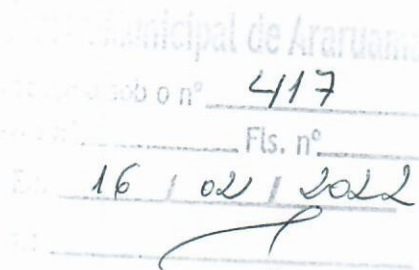 Municipal de Araruama
sob o nº 417
Fls. nº
16 / 02 / 2022